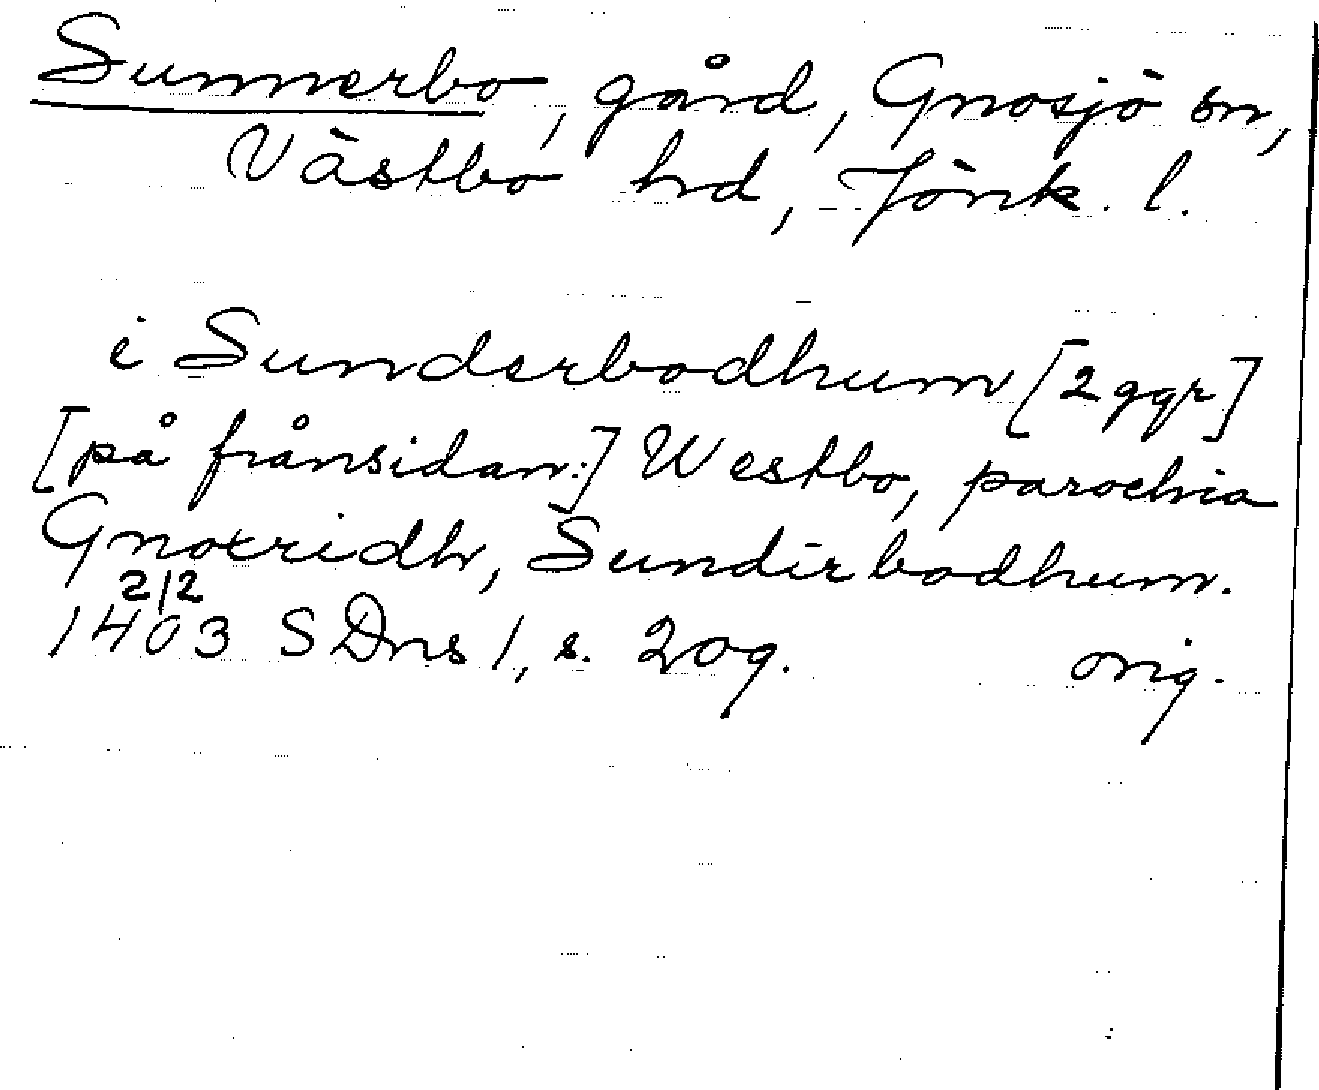 Sunnerbo, gård, Gnosjö sn,
Västbo hd, Jönk. l.
i Sunderbodhum [2 ggr]
[på frånsidan:] Westbo, parochia
Gnoxridh, Sundirbodhum.
2/2
1403 SDns 1, s. 209. orig.